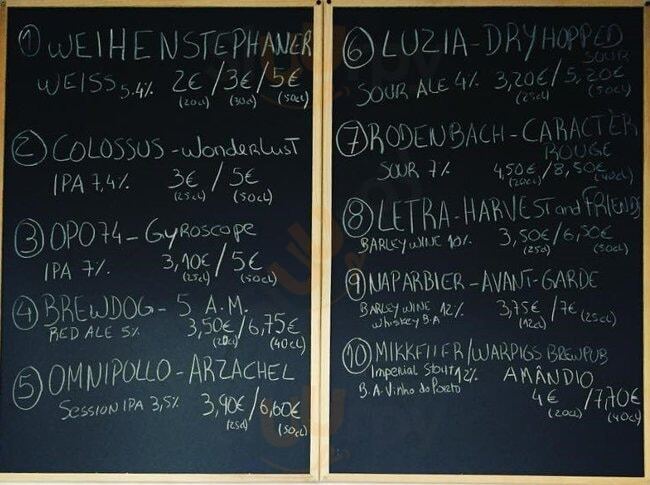 1 WEIHENSTEPHANER
WEISS 5.4% 2€/3€/5€
(20cl) (30cl) (50cl)
2 COLOSSUS - WONDERLUST
IPA 7,4% 3€/5€
(25cl) (50cl)
3 OPO74 - GYROSCOPE
IPA 7% 3,10€/5€
(25cl) (50cl)
4 BREWDOG - 5 A.M.
RED ALE 5% 3,50€/6,75€
(20cl) (40cl)
5 OMNIPOLLO - ARZACHEL
SESSION IPA 3,5% 3,90€/6,60€
(25cl) (50cl)
6 LUZIA - DRYHOPPED
SOUR
SOUR ALE 4% 3,20€/5,20€
(25cl) (50cl)
7 RODENBACH - CARACTÈR
ROUGE
SOUR 7% 4,50€/8,50€
(20cl) (40cl)
8 LETRA - HARVEST and FRIENDS
BARLEY WINE 10% 3,50€/6,50€
(25cl) (50cl)
9 NAPARBIER - AVANT-GARDE
BARLEY WINE 12% 3,75€/7€ (25cl)
Whiskey B.A (12cl)
10 MIKKELLER/WARPIGS BREWPUB
Imperial Stout 12% AMÂNDIO
B.A. Vinho do Porto 4€/7,70€
(20cl) (40cl)